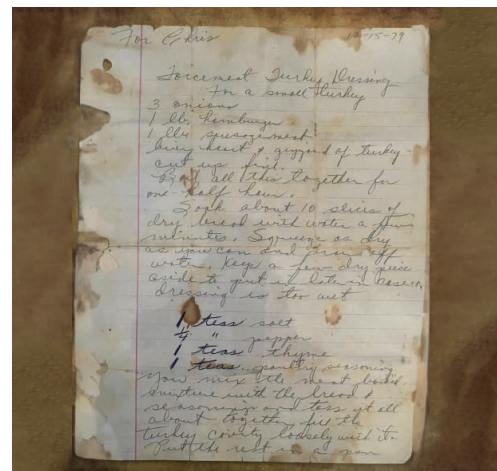 For Chris 12-15-79
Forcemeat Turkey Dressing
For a small turkey
3 onions
1 lb. hamburger
1 lb. sausagemeat
liver heart & gizzard of turkey
cut up fine.
all this together for
one half hour.
Soak about 10 slices of
dry bread with water a few
minutes. Squeeze as dry
as you can and drain off
water. Keep a few dry piece
aside to put in later in case
dressing is too wet
1 teas salt
1/4 " pepper
1 teas thyme
1 teas. poultry seasoning
You mix the meat
mixture with the bread &
seasonings and toss it all
about together, fill the
turkey cavity loosely with it.
Put the rest in a pan